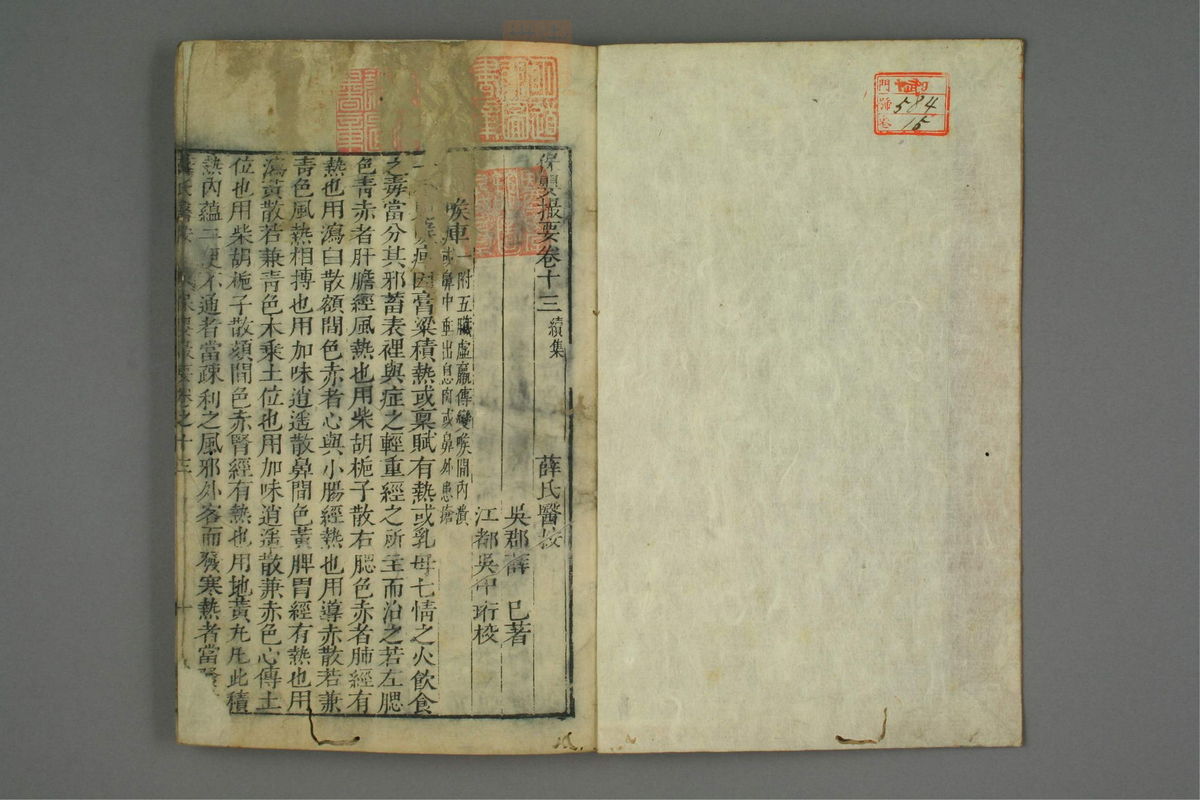 保嬰撮要卷十三 續集 薛氏醫按
吳郡薛 己著
江都吳中珩校
喉痺
附五臟虛羸傳變喉間內潰
或鼻中垂出息肉或鼻外患瘡
積熱或稟賦有熱或乳母七情之火飲食
之毒當分其邪蓄表裡與症之輕重經之所主而治之若左腮
色青赤者肝膽經風熱也用柴胡梔子散右腮色赤者肺經有
熱也用瀉白散額間色赤者心與小腸經熱也用導赤散若兼
青色風熱相搏也用加味逍遙散鼻間色黃脾胃經有熱也用
瀉黃散若兼青色木乘土位也用加味逍遙散兼赤色心傳土
位也用柴胡梔子散頦間色赤腎經有熱也用地黃丸凡此積
熱內蘊二便不通者當疎利之風邪外客而發寒熱者當發
卷之十三
門
號 584
卷 15